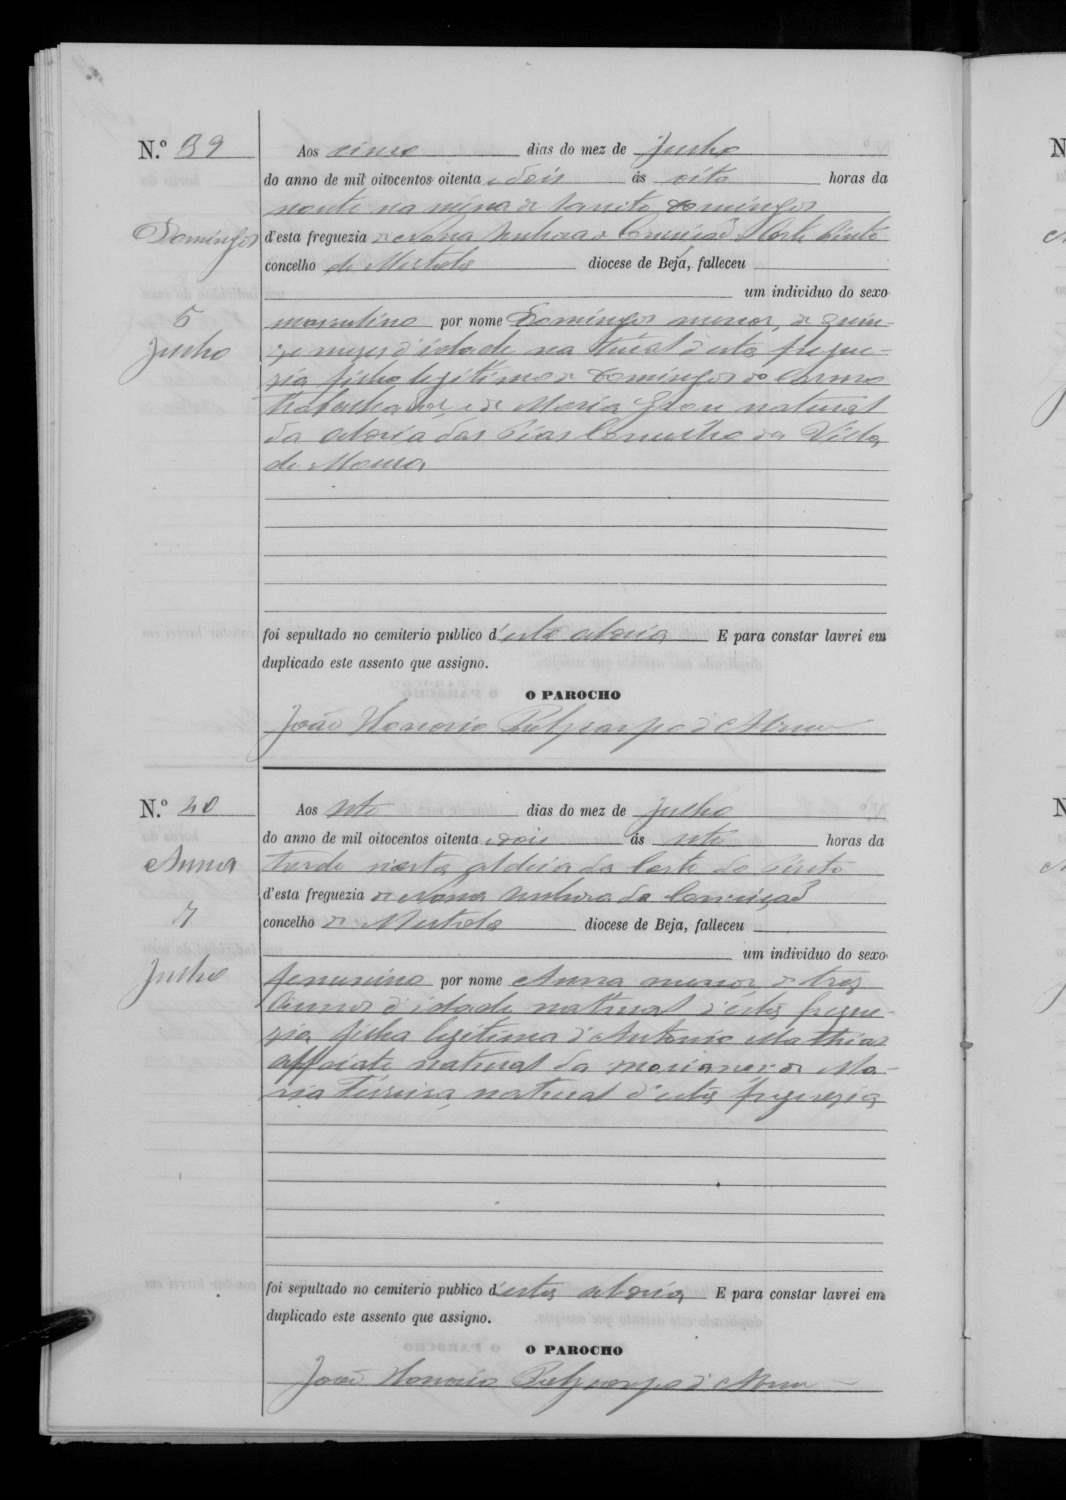 N.º 39
Aos cinco dias do mez de Junho
do anno de mil oitocentos oitenta e dois ás oito horas da
noute na mina de Sancto Domingos
Domingos
d'esta freguezia de Nossa Senhora da Conceicaõ de Corte Pinto
concelho de Mertola diocese de Beja, falleceu
um individuo do sexo
5
Junho
masculino por nome Domingos menor, de quin-
ze mezes d'idade natural d'esta fregue-
zia filho legitimo de Domingos do Carmo
trabalhador e de Maria natural
da aldeia das Pias Concelho da Villa
de Moura
foi sepultado no cemiterio publico d'esta aldeia E para constar lavrei em
duplicado este assento que assigno.
O PAROCHO
João Honorio d'Abreu
N.º 40
Aos sete dias do mez de Junho
do anno de mil oitocentos oitenta e dois ás sete horas da
Anna
tarde nesta aldeia da Corte do Pinto
d'esta freguezia de Nossa Senhora da Conceiçaõ
7
concelho de Mertola diocese de Beja, falleceu
um individuo do sexo
Junho
femenino por nome Anna menor de tres
annos d'idade natural d'esta fregue-
zia filha legitima d'Antonio Mathias
alfaiate natural da de Ma-
ria Teireira natural d'esta freguezia
foi sepultado no cemiterio publico d'esta aldeia E para constar lavrei em
duplicado este assento que assigno.
O PAROCHO
João Honorio d'Abreu